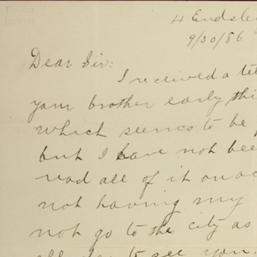 4 Endsle
9/30/86
Dear Sir:
I received a
your brother early thi
which seems to be
but I have not bee
read all of it on ac
not having my
not go to the city as
to see you.